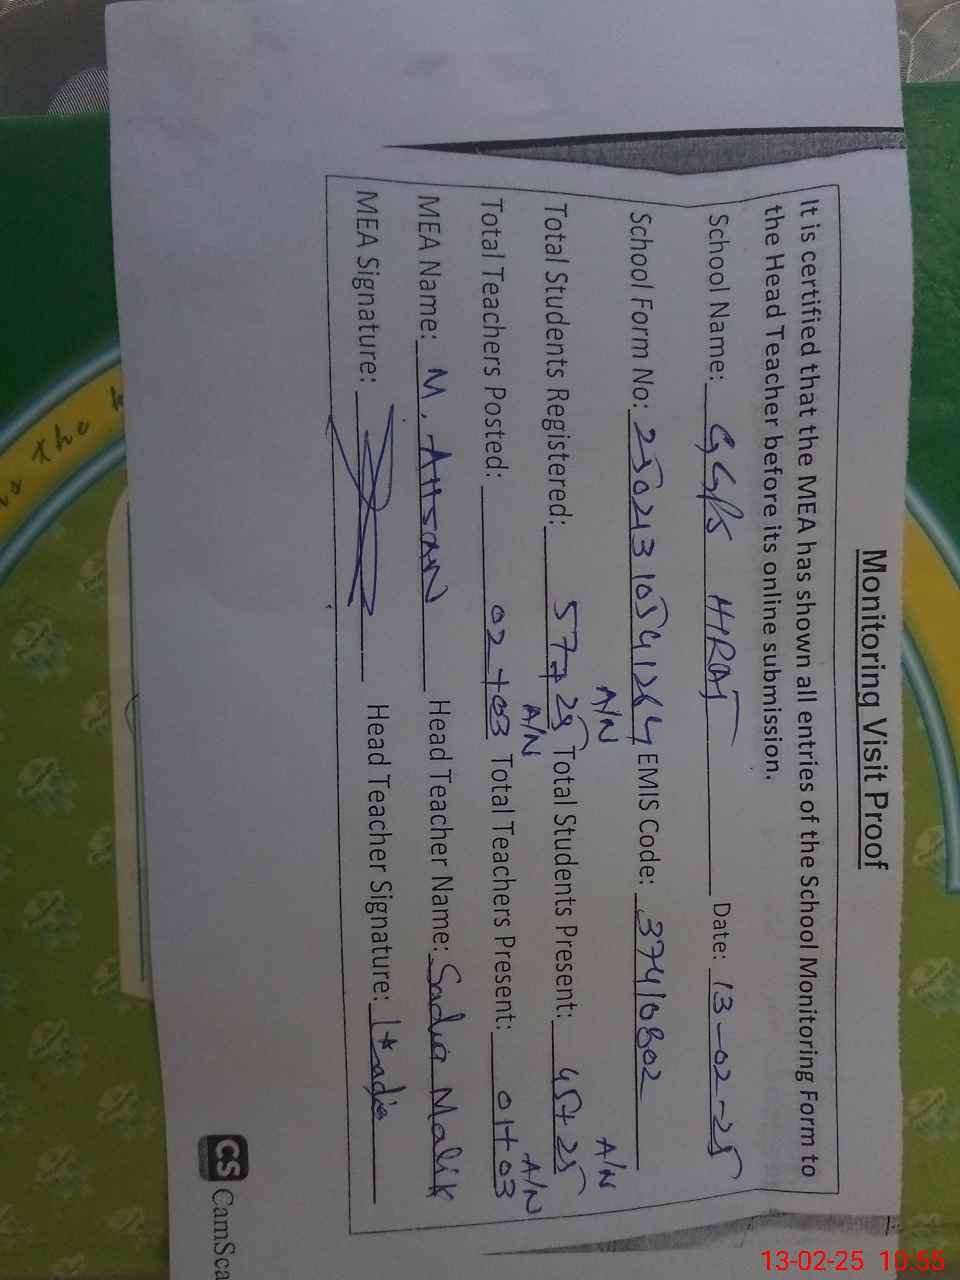 Monitoring Visit Proof
It is certified that the MEA has shown all entries of the School Monitoring Form to
the Head Teacher before its online submission.
School Name: GGPS HIRAJ Date: 13-02-25
A/N A/N
School Form No: 250213 10541264 EMIS Code: 37410802
Total Students Registered: 57+25 Total Students Present: 45+25
A/N A/N
Total Teachers Posted: 02+03 Total Teachers Present: 01+03
MEA Name: M. AHSAN Head Teacher Name: Sadia Malik
MEA Signature: Head Teacher Signature:
CS CamSca
the
13-02-25 10:55